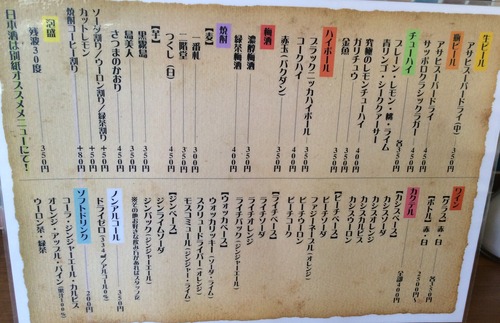 生ビール
アサヒスーパードライ(中) 450円
瓶ビール
アサヒスーパードライ 450円
サッポロクラシックラガー 450円
チューハイ
プレーン・レモン・桃・ライム
青リンゴ・シークァーサー 各350円
究極のレモンチューハイ 400円
ガリチュウ 400円
金魚 350円
ハイボール
ブラックニッカハイボール 350円
コークハイ 400円
赤玉(バクダン) 400円
梅酒
濃醇梅酒
緑茶梅酒 400円
焼酎
【麦】
一番札 300円
二階堂 350円
つくし(白) 450円
【芋】
黒霧島 350円
島美人 350円
さつまのかおり 450円
ソーダ割り/ウーロン割り/緑茶割り +50円
カットレモン +50円
焼酎コーヒー割り +80円
泡盛
残波30度 350円
日本酒は別紙オススメメニューにて!
ワイン
【グラス】赤・白 各350円
【ボトル】赤・白 2500円〜
カクテル 全部400円
【カシスベース】
カシスソーダ
カシスオレンジ
カシスカルピス
カシスウーロン
【ピーチベース】
ピーチソーダ
ファジーネーブル(オレンジ)
ピーチウーロン
ピーチコーク
【ライチベース】
ライチソーダ
ライチオレンジ
ライチウーロン
ライチバック(ジンジャーエール)
【ウォッカベース】
ウォッカリッキー(ソーダ・ライム)
スクリュードライバー(オレンジ)
モスコミュール(ジンジャー・ライム)
【ジンベース】
ジンライムソーダ
ジンバック(ジンジャーエール)
ノンアルコール
ドライゼロ(334㎖アルコール0%) 350円
ソフトドリンク 200円
コーラ・ジンジャーエール・カルピス
オレンジ・アップル・パイン(果汁100%)
ウーロン茶・緑茶